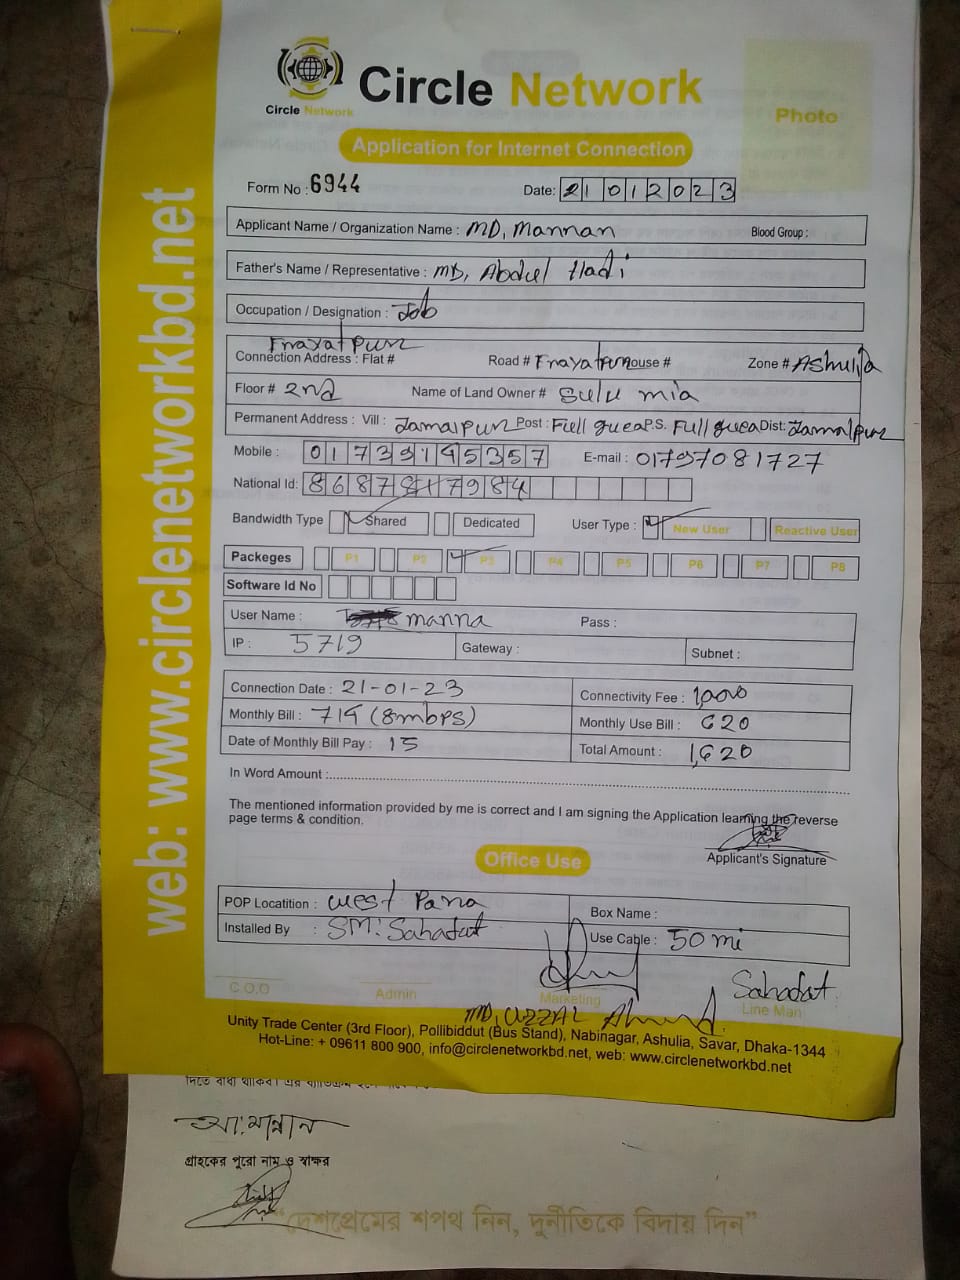 Circle Network
Circle Network
Photo
Application for Internet Connection
Form No : 6944
Date: 21012023
Applicant Name / Organization Name : MD, Mannan Blood Group :
Father's Name / Representative : MD, Abdul Hadi
Occupation / Designation : Job
Enayat pur
Connection Address : Flat # Road # Enayatpur House # Zone # Ashulia
Floor # 2nd Name of Land Owner # Sulu mia
Permanent Address : Vill : Jamalpur Post : P.S. Dist: Jamalpur
Mobile : E-mail : 01797081727
National Id:
Bandwidth Type Shared Dedicated User Type : New User Reactive User
Packeges P1 P2 P3 P4 P5 P6 P7 P8
Software Id No
User Name : manna Pass :
IP : 5719 Gateway : Subnet :
Connection Date : 21-01-23 Connectivity Fee : 1,000
Monthly Bill : 714 (8mbps) Monthly Use Bill : 620
Date of Monthly Bill Pay : 15 Total Amount : 1,620
In Word Amount :
The mentioned information provided by me is correct and I am signing the Application learning the reverse
page terms & condition.
Applicant's Signature
Office Use
POP Locatition : West Para Box Name :
Installed By : SM: Sahadat Use Cable : 50 mi
Sahadat
C.O.O Admin Marketing Line Man
MD, UZZAL Ahmed
Unity Trade Center (3rd Floor), Pollibiddut (Bus Stand), Nabinagar, Ashulia, Savar, Dhaka-1344
Hot-Line: + 09611 800 900, info@circlenetworkbd.net, web: www.circlenetworkbd.net
web: www.circlenetworkbd.net
আঃ মান্নান
গ্রাহকের পুরো নাম ও স্বাক্ষর
“দেশপ্রেমের শপথ নিন, দুর্নীতিকে বিদায় দিন”